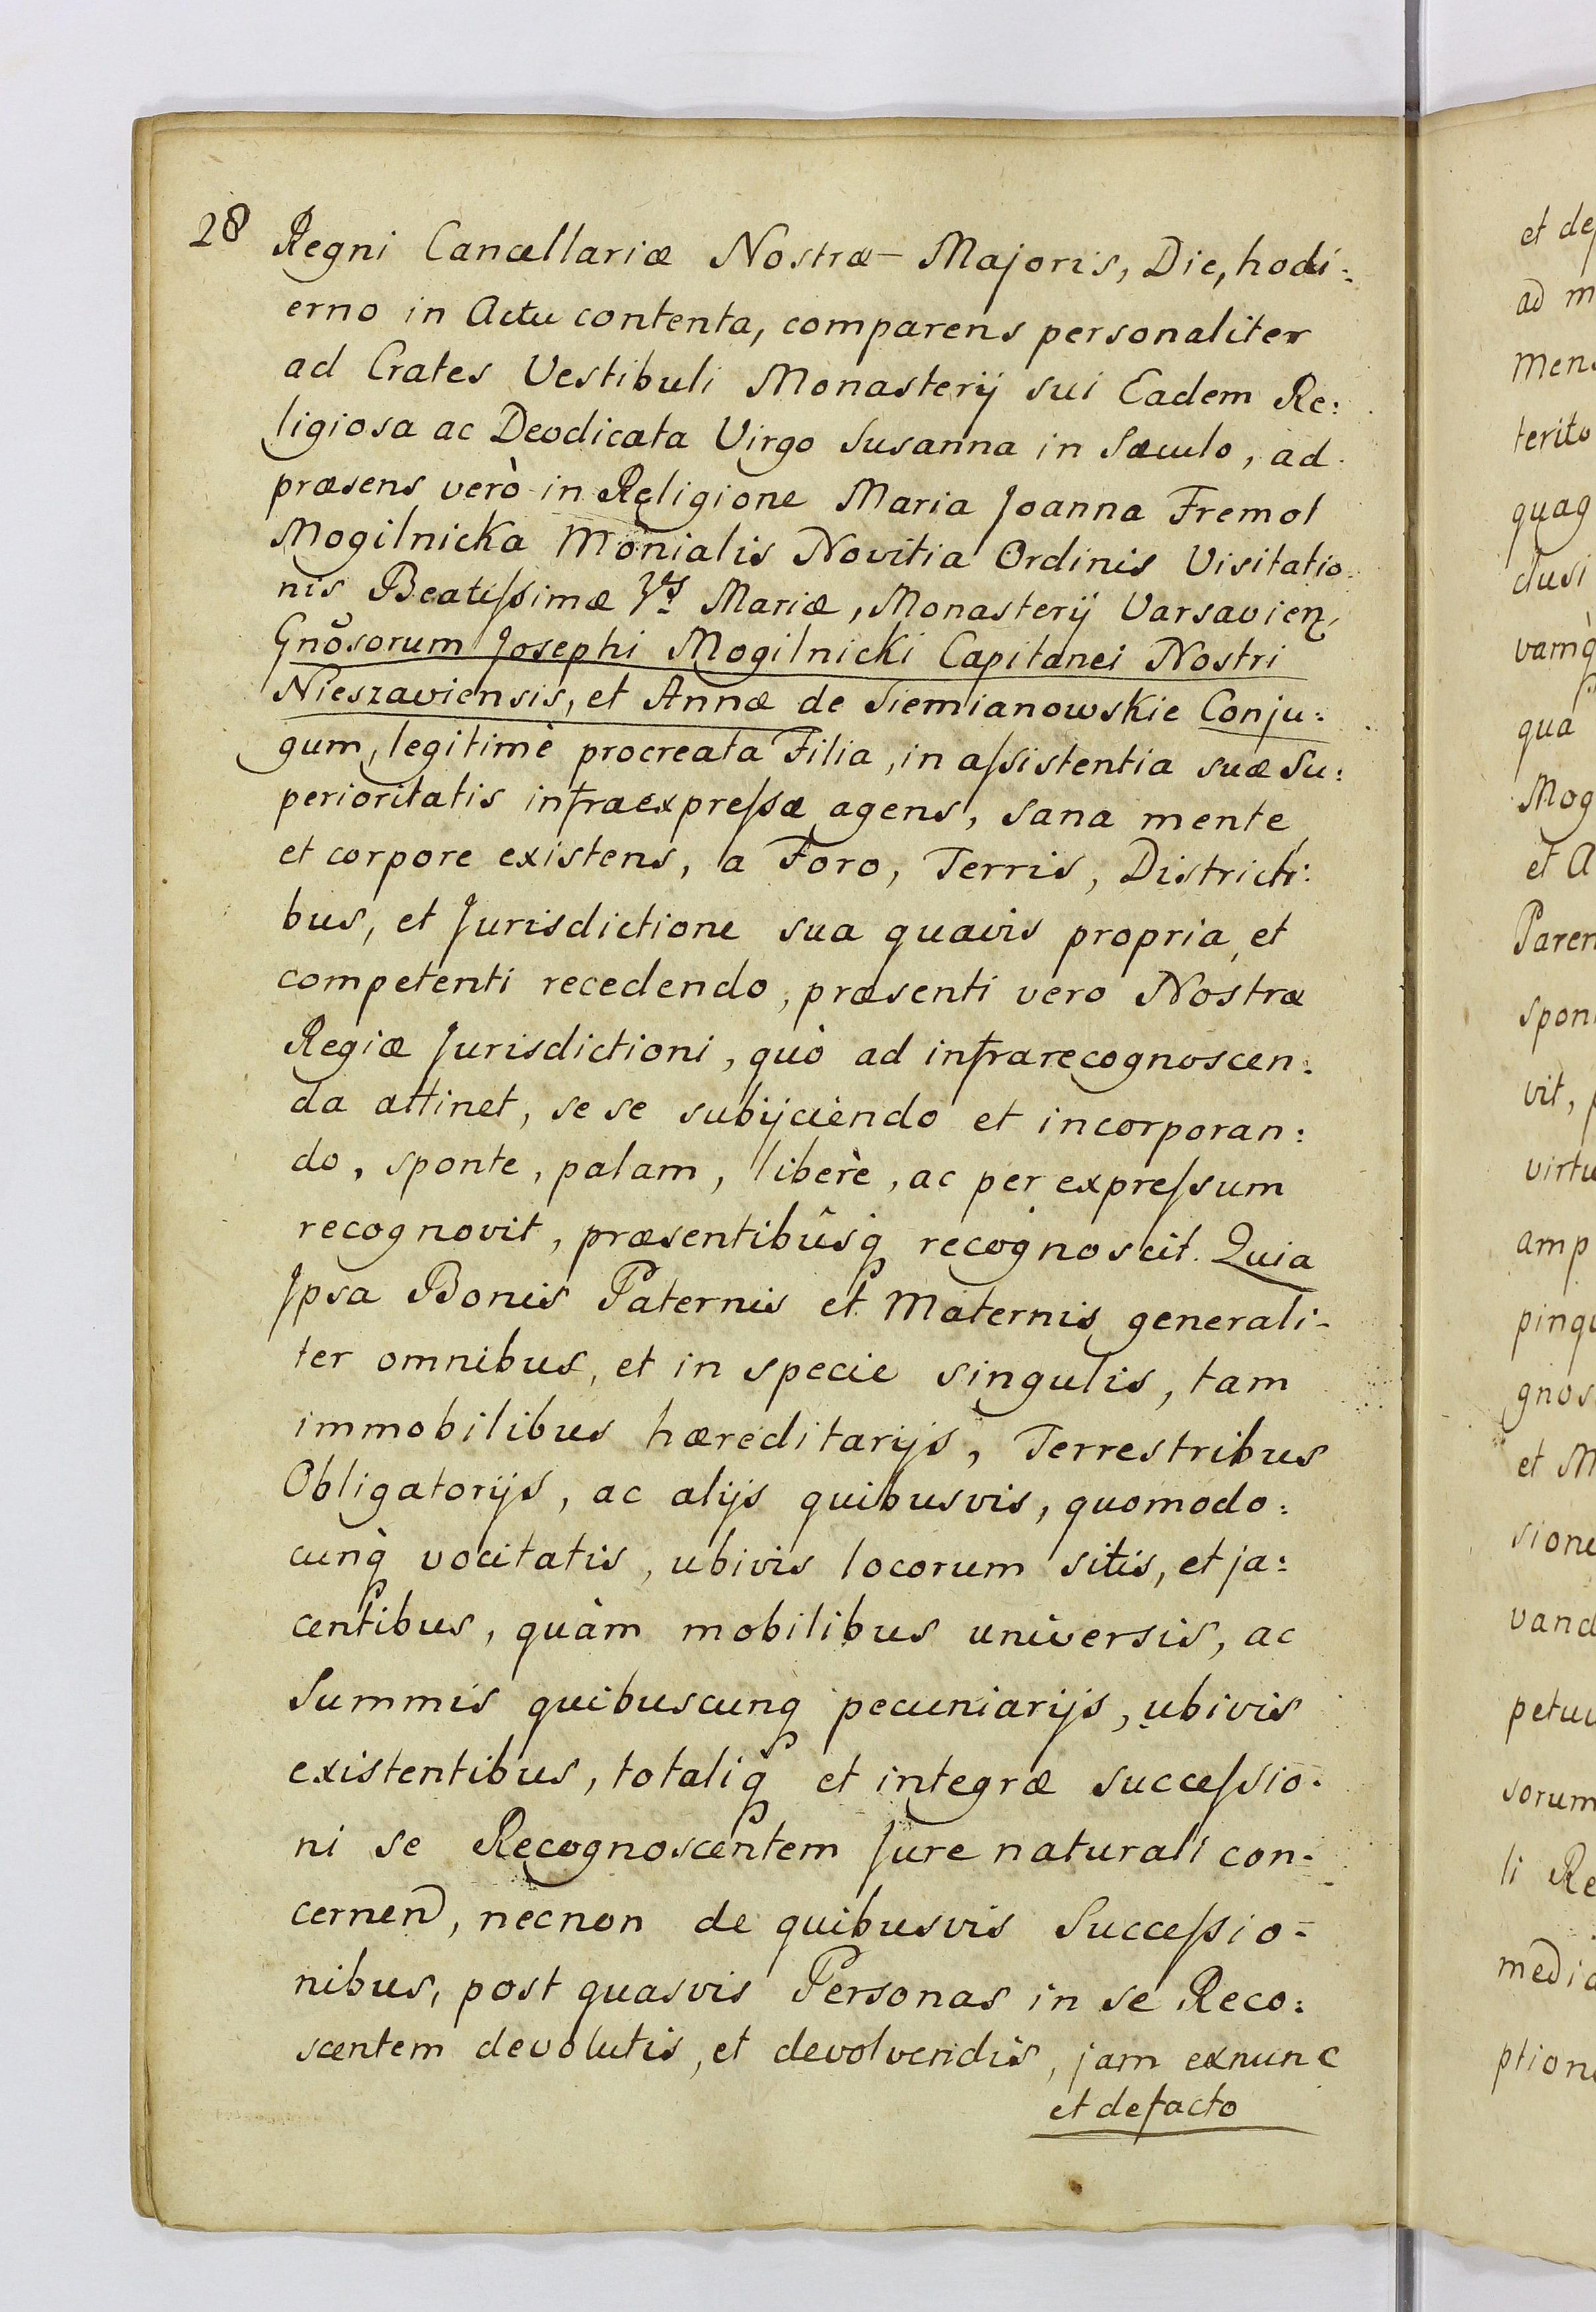 28 Regni Cancellariæ Nostræ Majoris, Die, hodi:
erno in Actu contenta, comparens personaliter
ad Crates Vestibuli Monasterij sui Eadem Re:
ligiosa ac Deodicata Virgo Susanna in Sæculo, ad
præsens verò in Religione Maria Joanna Fremol
Mogilnicka Monialis Novitia Ordinis Visitatio
nis Beatiſsimæ Vs Mariæ, Monasterij Varsavien,
Gnosorum Josephi Mogilnicki Capitanei Nostri
Nieszaviensis, et Annæ de Siemianowskie Conju:
gum, legitimè procreata Filia, in aſsistentia suæ Su:
perioritatis infraexpreſsæ agens, sana mente
et corpore existens, a Foro, Terris, Districti:
bus, et Jurisdictione sua quavis propria, et
competenti recedendo, præsenti vero Nostræ
Regiæ Jurisdictioni, quò ad infrarecognoscen:
da attinet, se se subijciendo et incorporan:
do, sponte, palam, liberè, ac per expreſsum
recognovit, præsentibûsq̀ recognoscit. Quia
Ipsa Bonis Paternis et Maternis generali-
ter omnibus, et in specie singulis, tam
immobilibus hæreditarijs, Terrestribus
Obligatorijs, ac alijs quibusvis, quomodo:
cunq̀ vocitatis, ubivis locorum sitis, et ja:
centibus, quàm mobilibus universis, ac
Summis quibuscunq pecuniarijs, ubivis
existentibus, totaliq̀ et integræ succeſsio:
ni se Recognoscentem Jure naturali con:
cernen, necnon de quibusvis Succeſsio=
nibus, post quasvis Personas in se Reco:
scentem devolutis, et devolvendis, jam exnunc
et defacto
et de
ad m
men
terito
quag
clusi
vamq̀
qua
Mog
et A
Paren
spon
vit,
virtu
amp
pingu
gnos
et M
sione
vand
petu
sorum
li Re
media
ption